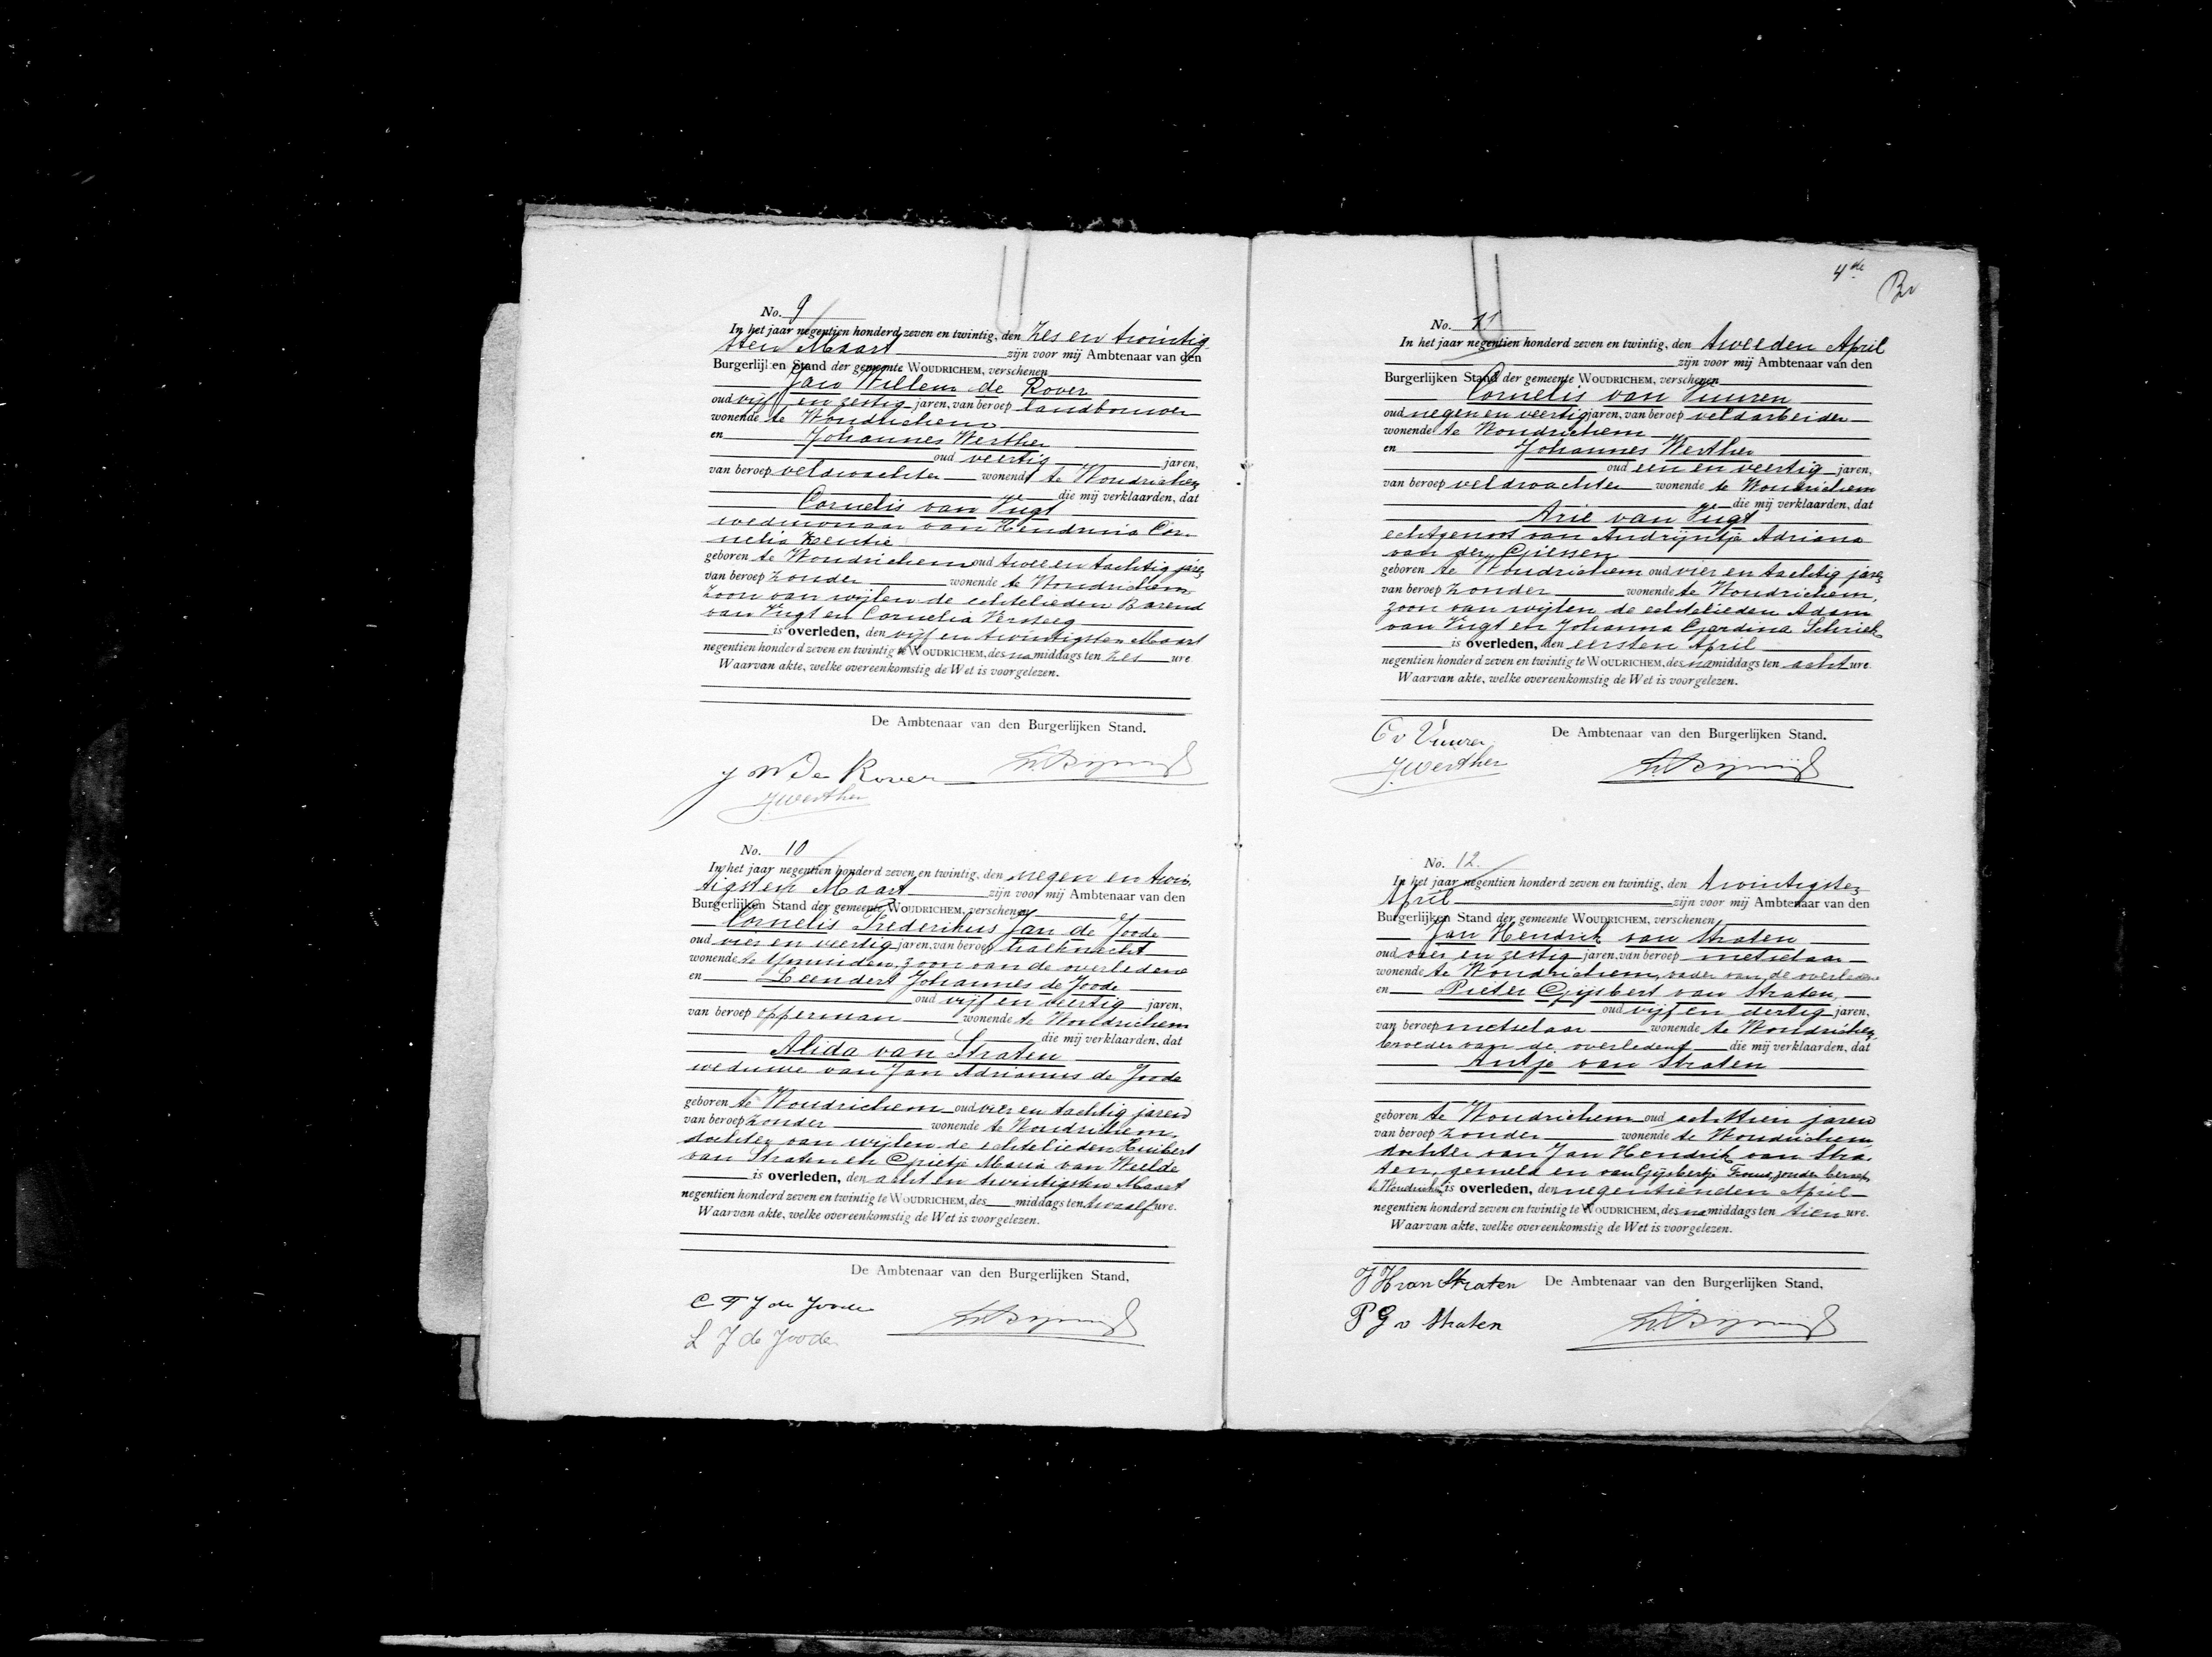 No. 9
In het jaar negentien honderd zeven en twintig, den zes en twintig-
sten Maart zijn voor mij Ambtenaar van den
Burgerlijken Stand der gemeente WOUDRICHEM, verschenen
Jan Willem de Rover
oud vijf en zestig jaren, van beroep landbouwer
wonende te Woudrichem
en Johannes Werther
oud veertig jaren,
van beroep veldwachter wonende te Woudrichem
die mij verklaarden, dat
Cornelis van Vugt
weduwnaar van Hendrina Cor-
nelia Kentie
geboren te Woudrichem oud twee en tachtig jaren
van beroep zonder wonende te Woudrichem
zoon van wijlen de echtelieden Barend
van Vugt en Cornelia Versteeg
is overleden, den vijf en twintigsten Maart
negentien honderd zeven en twintig te WOUDRICHEM, des namiddags ten zes ure
Waarvan akte, welke overeenkomstig de Wet is voorgelezen.
De Ambtenaar van den Burgerlijken Stand.
J W De Rover
J Werther
No. 10
In het jaar negentien honderd zeven en twintig, den negen en twin-
tigsten Maart zijn voor mij Ambtenaar van den
Burgerlijken Stand der gemeente WOUDRICHEM, verschenen
Cornelis Frederikus Jan de Joode
oud vier en veertig jaren, van beroep
wonende te Ymuiden, zoon van de overledene
en Leendert Johannes de Joode
oud vijf en veertig jaren,
van beroep opperman wonende te Woudrichem
die mij verklaarden, dat
Alida van Straten
weduwe van Jan Adrianus de Joode
geboren te Woudrichem oud vier en tachtig jaren
van beroep zonder wonende te Woudrichem,
dochter van wijlen de echtelieden Huibert
van Straten en Grietje Maria van Weelde
is overleden, den acht en twintigsten Maart
negentien honderd zeven en twintig te WOUDRICHEM, des middags ten twaalf ure.
Waarvan akte, welke overeenkomstig de Wet is voorgelezen.
De Ambtenaar van den Burgerlijken Stand,
C F J de Joode
L J de Joode
4de
No. 11
In het jaar negentien honderd zeven en twintig, den tweeden April
zijn voor mij Ambtenaar van den
Burgerlijken Stand der gemeente WOUDRICHEM, verschenen
Cornelis van Vuuren
oud negen en veertig jaren, van beroep veldarbeider
wonende te Woudrichem
en Johannes Werther
oud een en veertig jaren,
van beroep veldwachter wonende te Woudrichem
die mij verklaarden, dat
Arie van Vugt
echtgenoot van Andrijntje Adriana
van der Giessen
geboren te Woudrichem oud vier en tachtig jaren
van beroep zonder wonende te Woudrichem,
zoon van wijlen de echtelieden Adam
van Vugt en Johanna Gerdina Schriek
is overleden, den eersten April
negentien honderd zeven en twintig te WOUDRICHEM, des namiddags ten acht ure.
Waarvan akte, welke overeenkomstig de Wet is voorgelezen.
De Ambtenaar van den Burgerlijken Stand.
C v Vuuren
J. Werther
No. 12.
In het jaar negentien honderd zeven en twintig, den twintigsten
April zijn voor mij Ambtenaar van den
Burgerlijken Stand der gemeente WOUDRICHEM, verschenen
Jan Hendrik van Straten
oud vier en zestig jaren, van beroep metselaar
wonende te Woudrichem, vader van de overledene
en Pieter Gijsbert van Straten,
oud vijf en dertig jaren,
van beroep metselaar wonende te Woudrichem,
broeder van de overledene die mij verklaarden, dat
Antje van Straten
geboren te Woudrichem oud achttien jaren
van beroep zonder wonende te Woudrichem
dochter van Jan Hendrik van Stra-
ten, gemeld en van Gijsbertje zonder beroep,
te Woudrichem is overleden, den negentienden April
negentien honderd zeven en twintig te WOUDRICHEM, des namiddags ten tien ure.
Waarvan akte, welke overeenkomstig de Wet is voorgelezen.
J H van Straten De Ambtenaar van den Burgerlijken Stand,
P G v Straten